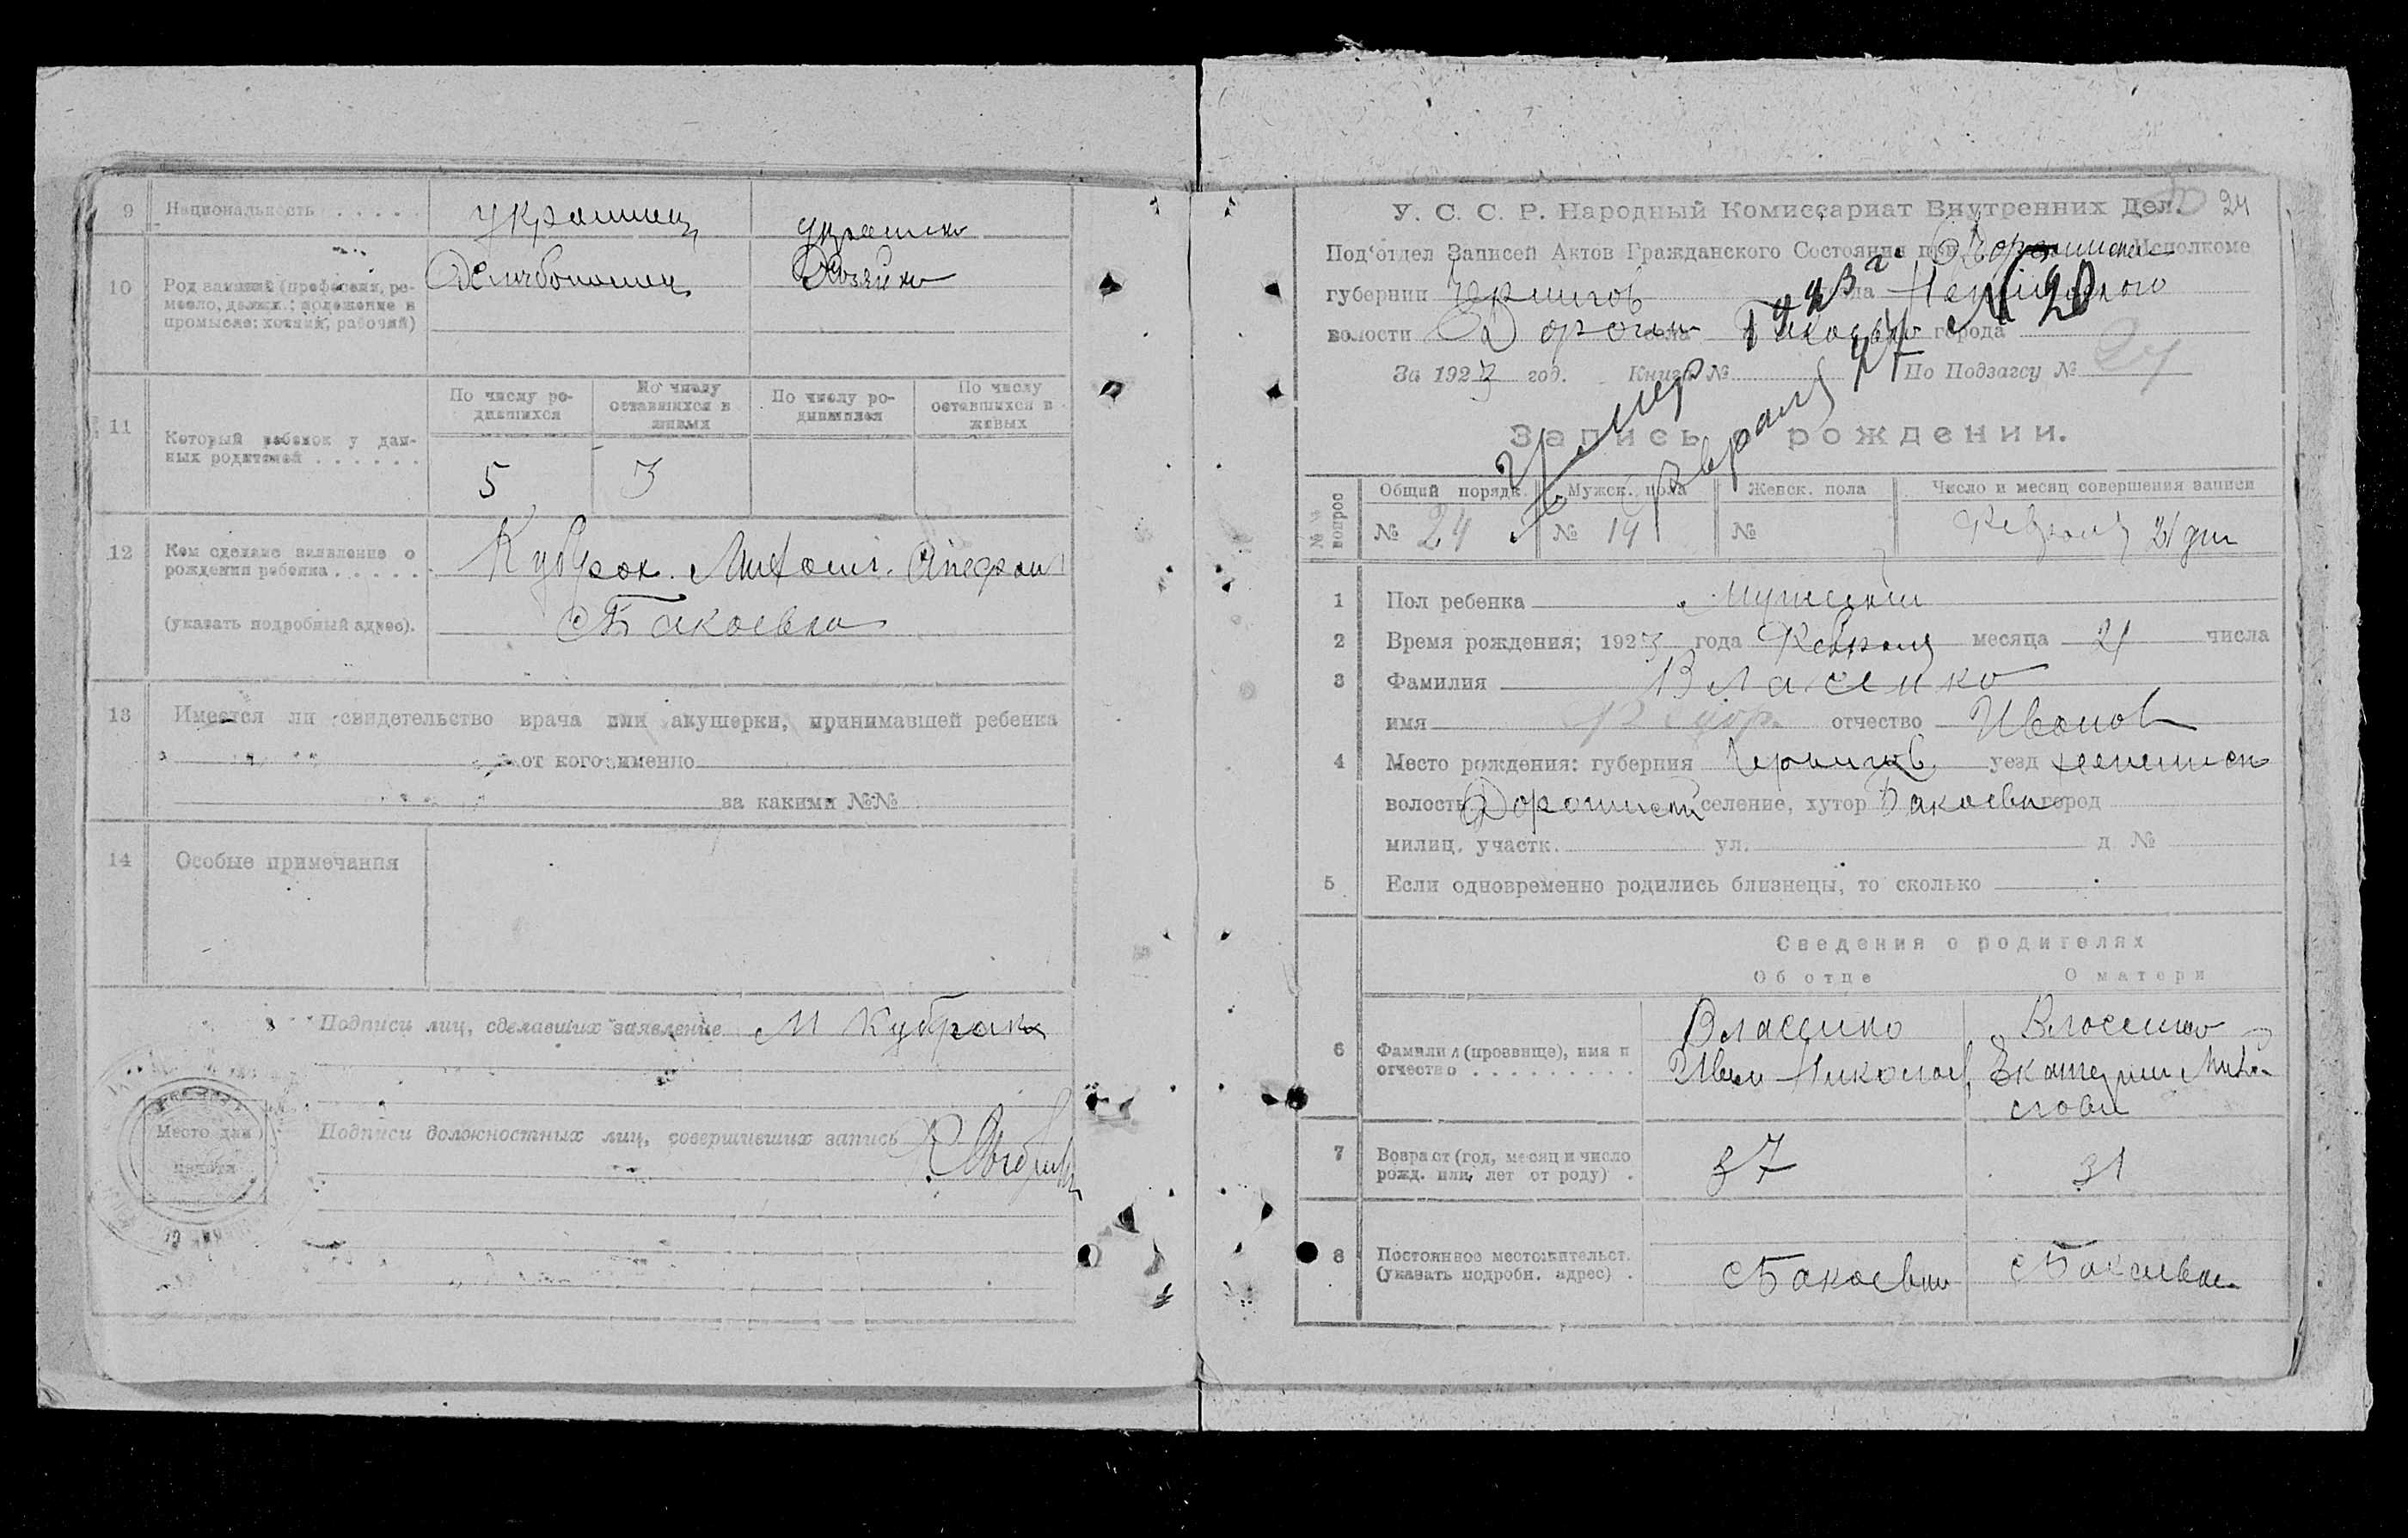 9 Национальность . . . . . украинец украинка
10 Род занятий (профессия, ре-
месло, должн.; положение в
промысле: хозяин, рабочий)
Хлебопашец Хозяйка
11 Который ребенок у дан-
ных родителей . . . . . .
По числу ро-
дившихся
По числу
оставшихся в
живых
По числу ро-
дившихся
По числу
оставшихся в
живых
5 3
12 Кем сделано заявление о
рождении ребенка . . . . .
(указать подробный адрес).
Кубрак
с Бакаевка
13 Имеется ли свидетельство врача или акушерки, принимавшей ребенка
от кого именно
за какими №№
14 Особые примечания
Подписи лиц, сделавших заявление М Кубрак
Подписи должностных лиц, совершивших запись
Место для
печати
24
У. С. С. Р. Народный Комиссариат Внутренних Дел.
Под'отдел Записей Актов Гражданского Состояния при Исполкоме
губернии Чернигов
волости города
За 1923 год. Книга № По Подзагсу № 24
Умер
Февраля 27
1923 г. № 20
Запись рождении.
№№ вопрос
Общий порядк. Мужск. пола Женск. пола Число и месяц совершения записи
№ 24 № 14 № Февраля 21 дня
1 Пол ребенка Мужской
2 Время рождения; 1923 года Февраля месяца 21 числа
3 Фамилия Власенко
имя отчество Иванов
4 Место рождения: губерния Чернигов уезд
волость Дорогинской селение, хутор Бакаевка город
милиц. участк. ул. д №
5 Если одновременно родились близнецы, то сколько
Сведения о родителях
Об отце О матери
6 Фамилия (прозвище), имя и
отчество . . . . . . . . .
Власенко
Иван Николаев
Власенко
Екатерина Михай-
лова
7 Возраст (год, месяц и число
рожд. или, лет от роду) .
37 31
8 Постоянное местожительст.
(указать подробн. адрес) .
с Бакаевка с Бакаевка